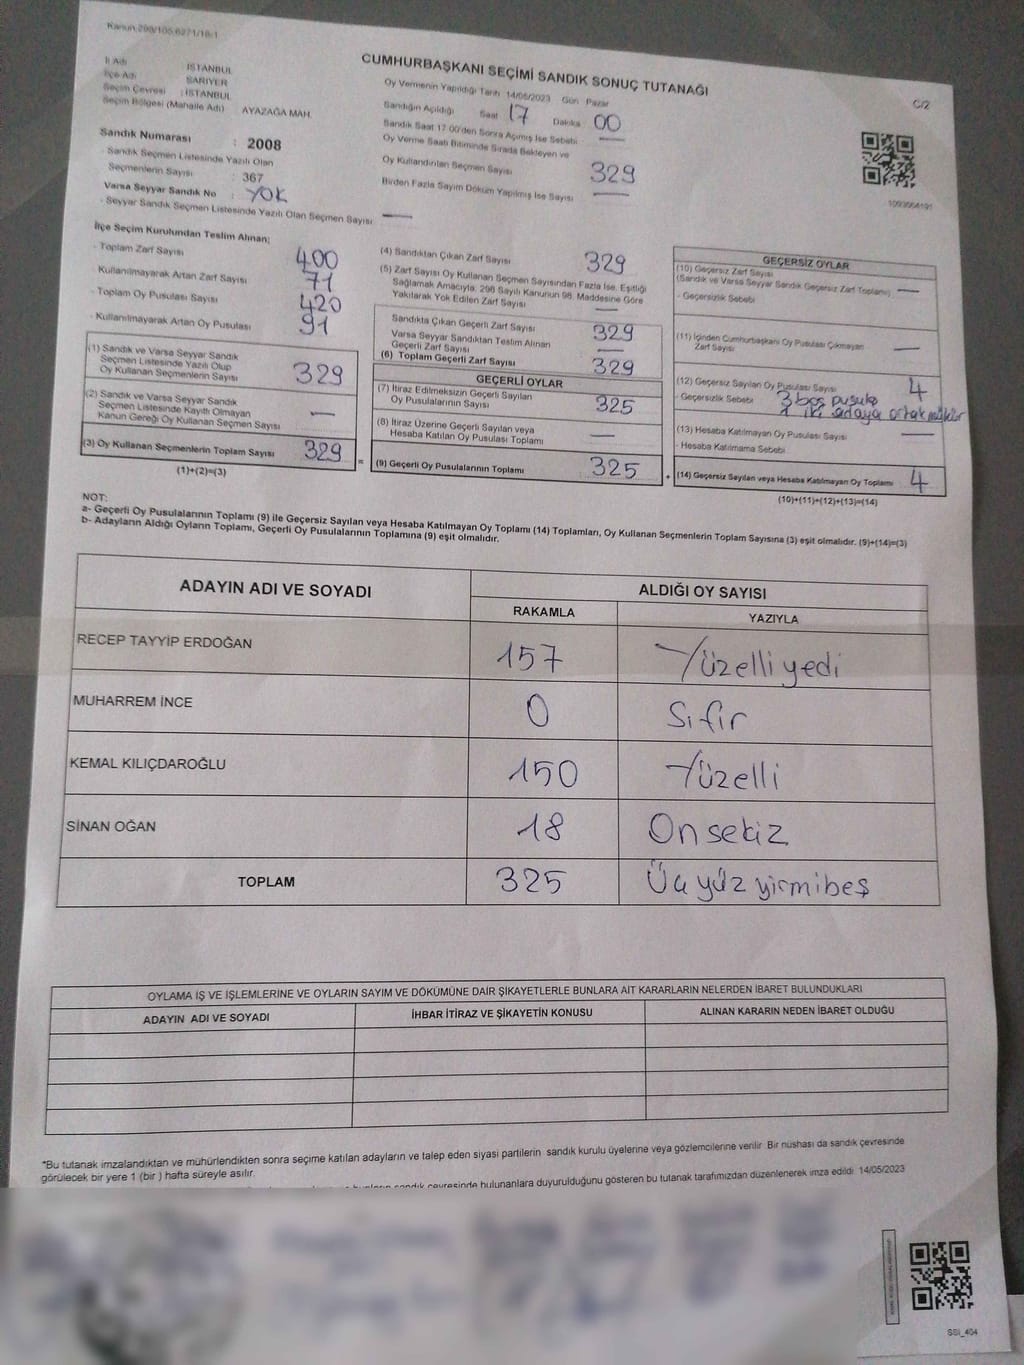 Kanun:298/105,6271/18-1
CUMHURBAŞKANI SEÇİMİ SANDIK SONUÇ TUTANAĞI
C/2
İl Adı İSTANBUL
İlçe Adı SARIYER
Seçim Çevresi : İSTANBUL
Seçim Bölgesi (Mahalle Adı) AYAZAĞA MAH.
Sandık Numarası : 2008
- Sandık Seçmen Listesinde Yazılı Olan
Seçmenlerin Sayısı : 367
Varsa Seyyar Sandık No : YOK
- Seyyar Sandık Seçmen Listesinde Yazılı Olan Seçmen Sayısı —
Oy Vermenin Yapıldığı Tarih 14/05/2023 Gün Pazar
Sandığın Açıldığı Saat 17 Dakika 00
Sandık Saat 17.00'den Sonra Açılmış İse Sebebi —
Oy Verme Saati Bitiminde Sırada Bekleyen ve
Oy Kullandırılan Seçmen Sayısı 329
Birden Fazla Sayım Döküm Yapılmış İse Sayısı —
İlçe Seçim Kurulundan Teslim Alınan;
- Toplam Zarf Sayısı 400
Kullanılmayarak Artan Zarf Sayısı 71
- Toplam Oy Pusulası Sayısı 420
- Kullanılmayarak Artan Oy Pusulası 91
(1) Sandık ve Varsa Seyyar Sandık
Seçmen Listesinde Yazılı Olup
Oy Kullanan Seçmenlerin Sayısı 329
(2) Sandık ve Varsa Seyyar Sandık
Seçmen Listesinde Kayıtlı Olmayan
Kanun Gereği Oy Kullanan Seçmen Sayısı —
(3) Oy Kullanan Seçmenlerin Toplam Sayısı 329
(1)+(2)=(3)
=
(4) Sandıktan Çıkan Zarf Sayısı 329
(5) Zarf Sayısı Oy Kullanan Seçmen Sayısından Fazla İse, Eşitliği
Sağlamak Amacıyla, 298 Sayılı Kanunun 98. Maddesine Göre
Yakılarak Yok Edilen Zarf Sayısı —
Sandıkta Çıkan Geçerli Zarf Sayısı 329
Varsa Seyyar Sandıktan Teslim Alınan
Geçerli Zarf Sayısı —
(6) Toplam Geçerli Zarf Sayısı 329
GEÇERLİ OYLAR
(7) İtiraz Edilmeksizin Geçerli Sayılan
Oy Pusulalarının Sayısı 325
(8) İtiraz Üzerine Geçerli Sayılan veya
Hesaba Katılan Oy Pusulası Toplamı —
(9) Geçerli Oy Pusulalarının Toplamı 325
+
GEÇERSİZ OYLAR
(10) Geçersiz Zarf Sayısı
(Sandık ve Varsa Seyyar Sandık Geçersiz Zarf Toplamı) —
- Geçersizlik Sebebi
(11) İçinden Cumhurbaşkanı Oy Pusulası Çıkmayan
Zarf Sayısı —
(12) Geçersiz Sayılan Oy Pusulası Sayısı 4
- Geçersizlik Sebebi 3 boş pusula
1 iki adaya ortak mühür
(13) Hesaba Katılmayan Oy Pusulası Sayısı —
- Hesaba Katılmama Sebebi
(14) Geçersiz Sayılan veya Hesaba Katılmayan Oy Toplamı 4
(10)+(11)+(12)+(13)=(14)
NOT:
a- Geçerli Oy Pusulalarının Toplamı (9) ile Geçersiz Sayılan veya Hesaba Katılmayan Oy Toplamı (14) Toplamları, Oy Kullanan Seçmenlerin Toplam Sayısına (3) eşit olmalıdır. (9)+(14)=(3)
b- Adayların Aldığı Oyların Toplamı, Geçerli Oy Pusulalarının Toplamına (9) eşit olmalıdır.
ADAYIN ADI VE SOYADI ALDIĞI OY SAYISI
RAKAMLA YAZIYLA
RECEP TAYYİP ERDOĞAN 157 Yüzelliyedi
MUHARREM İNCE 0 Sıfır
KEMAL KILIÇDAROĞLU 150 Yüzelli
SİNAN OĞAN 18 Onsekiz
TOPLAM 325 Üçyüzyirmibeş
OYLAMA İŞ VE İŞLEMLERİNE VE OYLARIN SAYIM VE DÖKÜMÜNE DAİR ŞİKAYETLERLE BUNLARA AİT KARARLARIN NELERDEN İBARET BULUNDUKLARI
ADAYIN ADI VE SOYADI İHBAR İTİRAZ VE ŞİKAYETİN KONUSU ALINAN KARARIN NEDEN İBARET OLDUĞU
*Bu tutanak imzalandıktan ve mühürlendikten sonra seçime katılan adayların ve talep eden siyasi partilerin sandık kurulu üyelerine veya gözlemcilerine verilir. Bir nüshası da sandık çevresinde
görülecek bir yere 1 (bir ) hafta süreyle asılır.
sandık çevresinde bulunanlara duyurulduğunu gösteren bu tutanak tarafımızdan düzenlenerek imza edildi. 14/05/2023
SSI_404